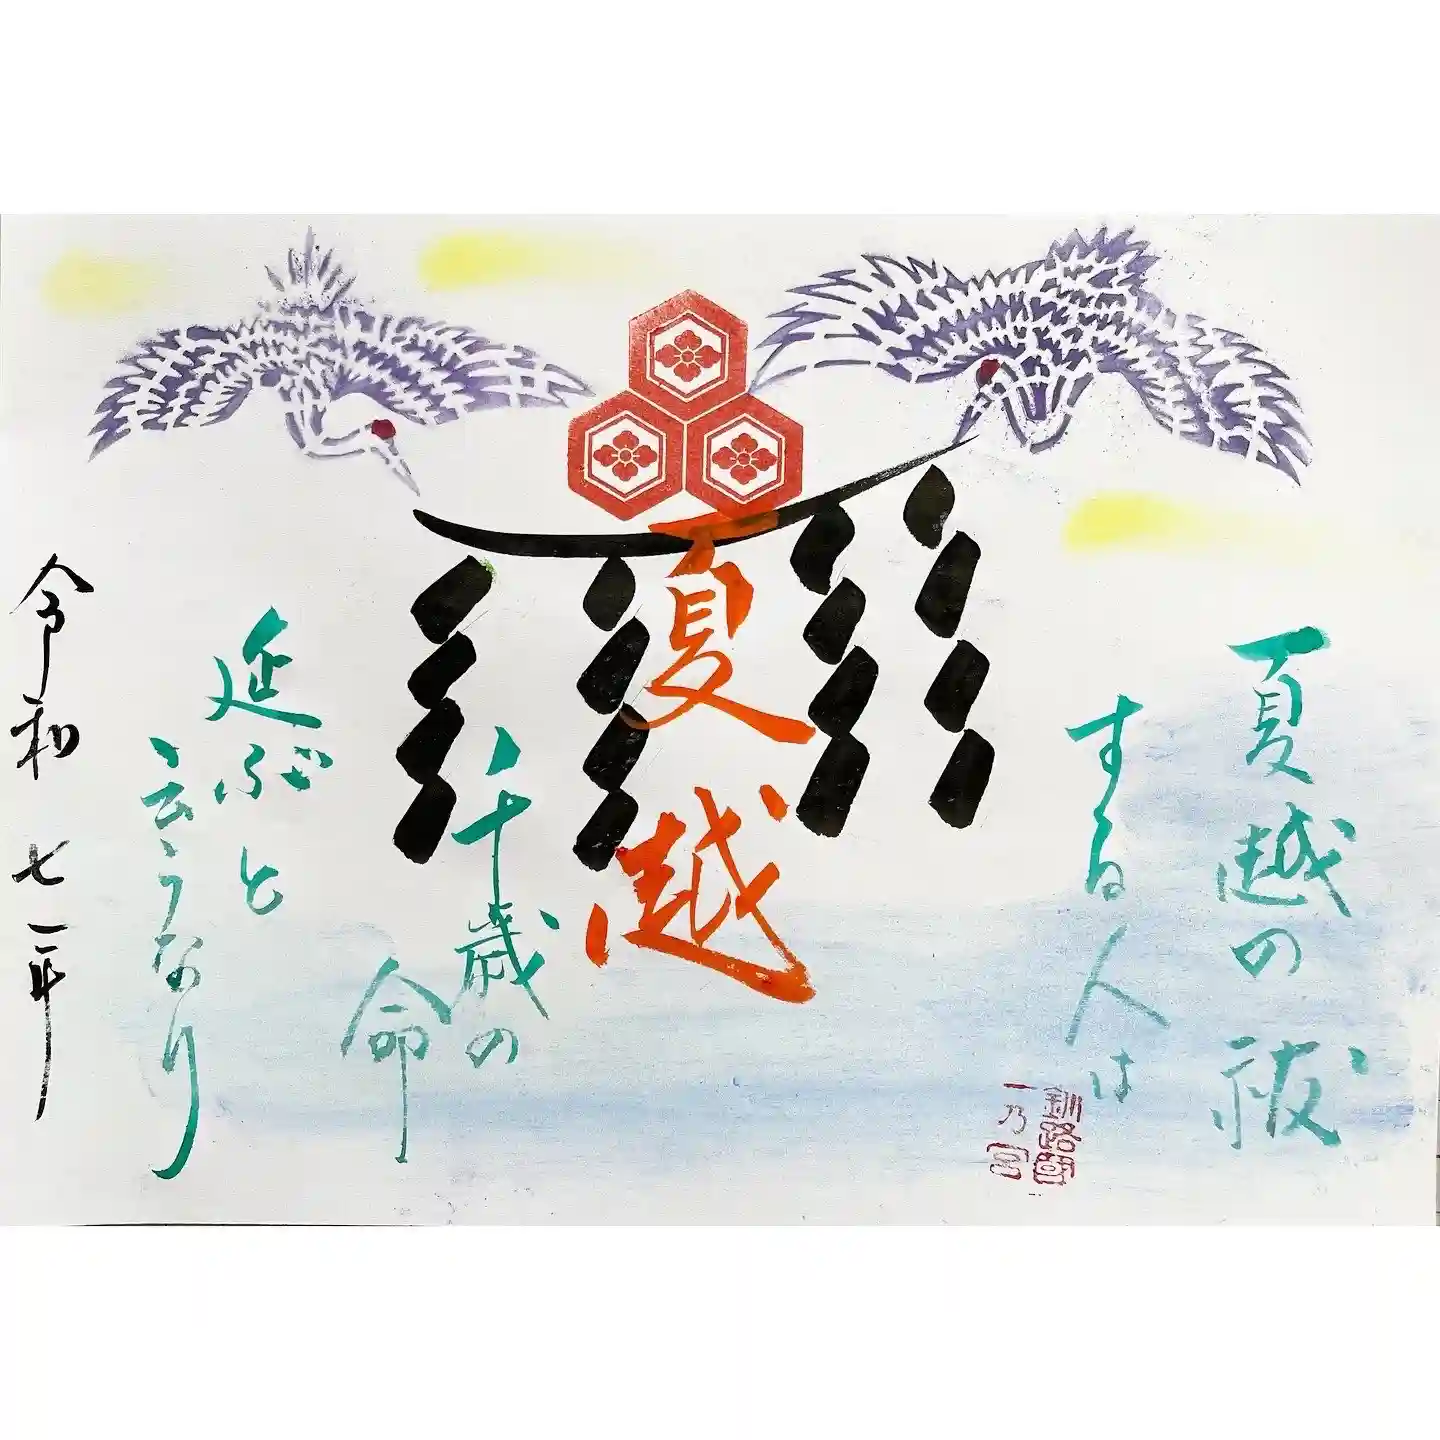 夏越の祓
する人は
夏越
千歳の
命
延ぶと
云うなり
令和 七年
釧路國
一乃宮